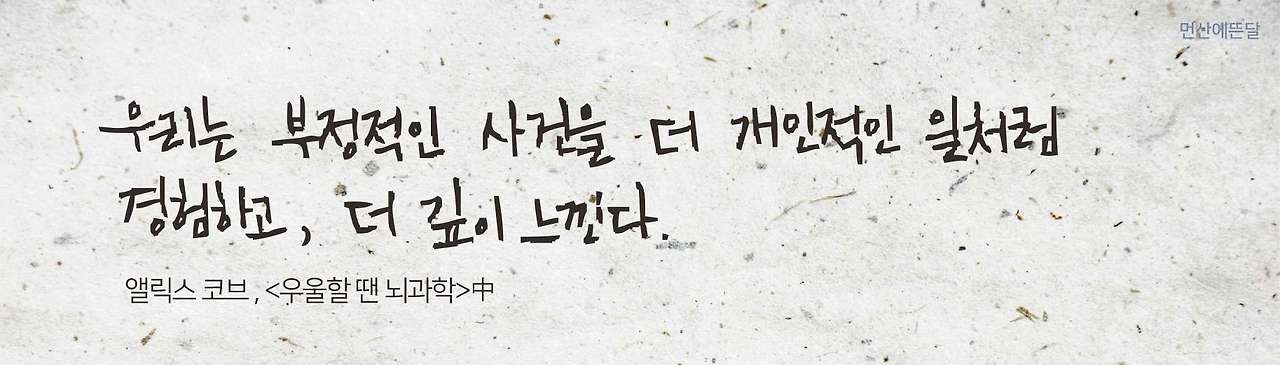 먼산에뜬달
우리는 부정적인 사건을 더 개인적인 일처럼
경험하고, 더 깊이 느낀다.
앨릭스 코브, <우울할 땐 뇌과학>中